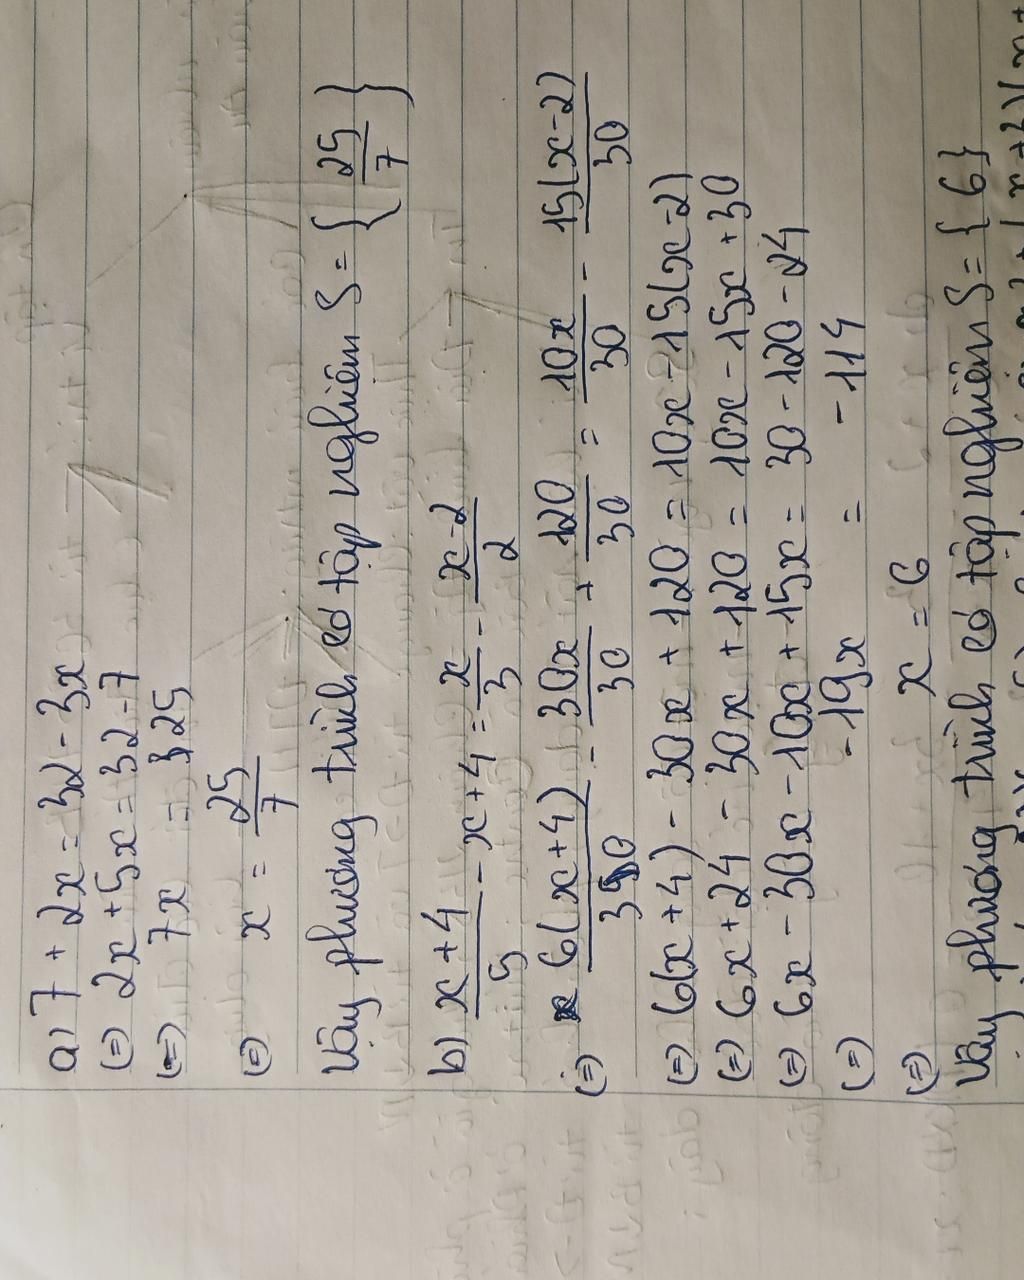 a) 7 + 2x = 32 - 3x
(=) 2x + 5x = 32 - 7
(=) 7x = 25
(=) x = 25/7
Vậy phương trình có tập nghiệm S = { 25/7 }
b) (x+4)/5 - x + 4 = x/3 - (x-2)/2
(=) 6(x+4)/30 - 30x/30 + 120/30 = 10x/30 - 15(x-2)/30
(=) 6(x+4) - 30x + 120 = 10x - 15(x-2)
(=) 6x + 24 - 30x + 120 = 10x - 15x + 30
(=) 6x - 30x - 10x + 15x = 30 - 120 - 24
(=) -19x = -114
(=) x = 6
Vậy phương trình có tập nghiệm S = { 6 }